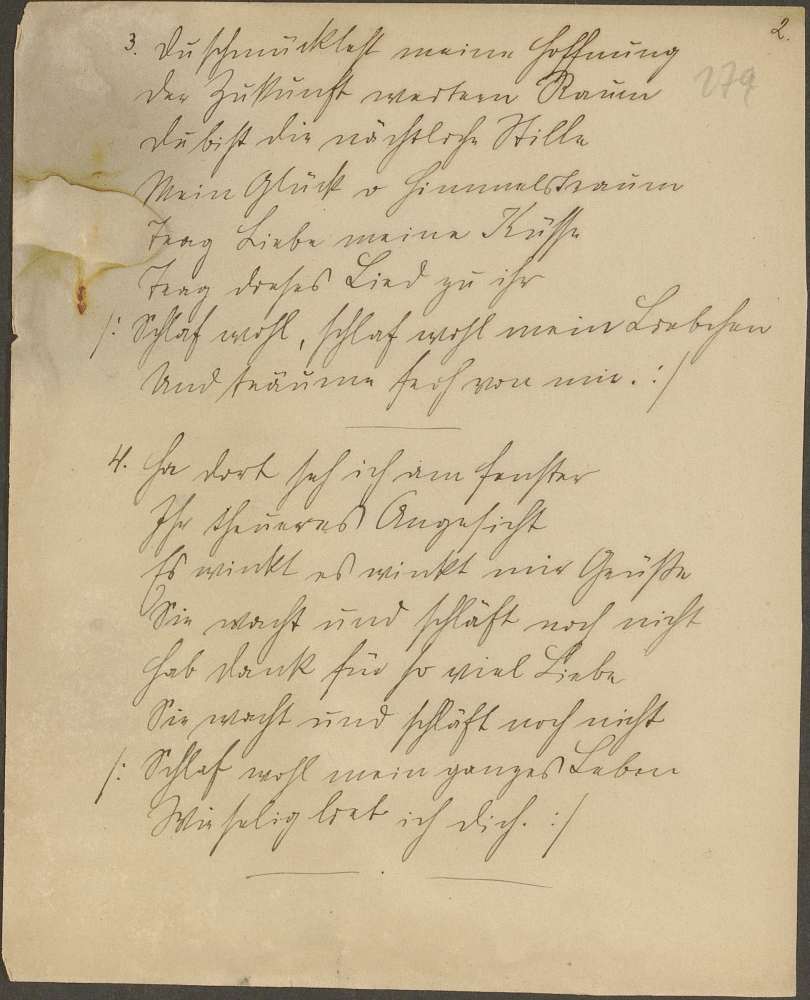 2.
279
3. Du schmücktest meine Hoffnung
Der Zukunft weitern Raum
Du bist die nächtliche Stille
Mein Glück o Himmelstraum
Trag Liebe meine Küsse
Trag dieses Lied zu ihr
/: Schlaf wohl, schlaf wohl mein Liebchen
Und träume froh von mir. :/
4. Ha dort seh ich am Fenster
Ihr theueres Angesicht
Es winkt es winkt mir Grüße
Sie wacht und schläft noch nicht
Hab Dank für so viel Liebe
Sie wacht und schläft noch nicht
/: Schlaf wohl mein ganzes Leben
Wie selig lieb ich dich. :/